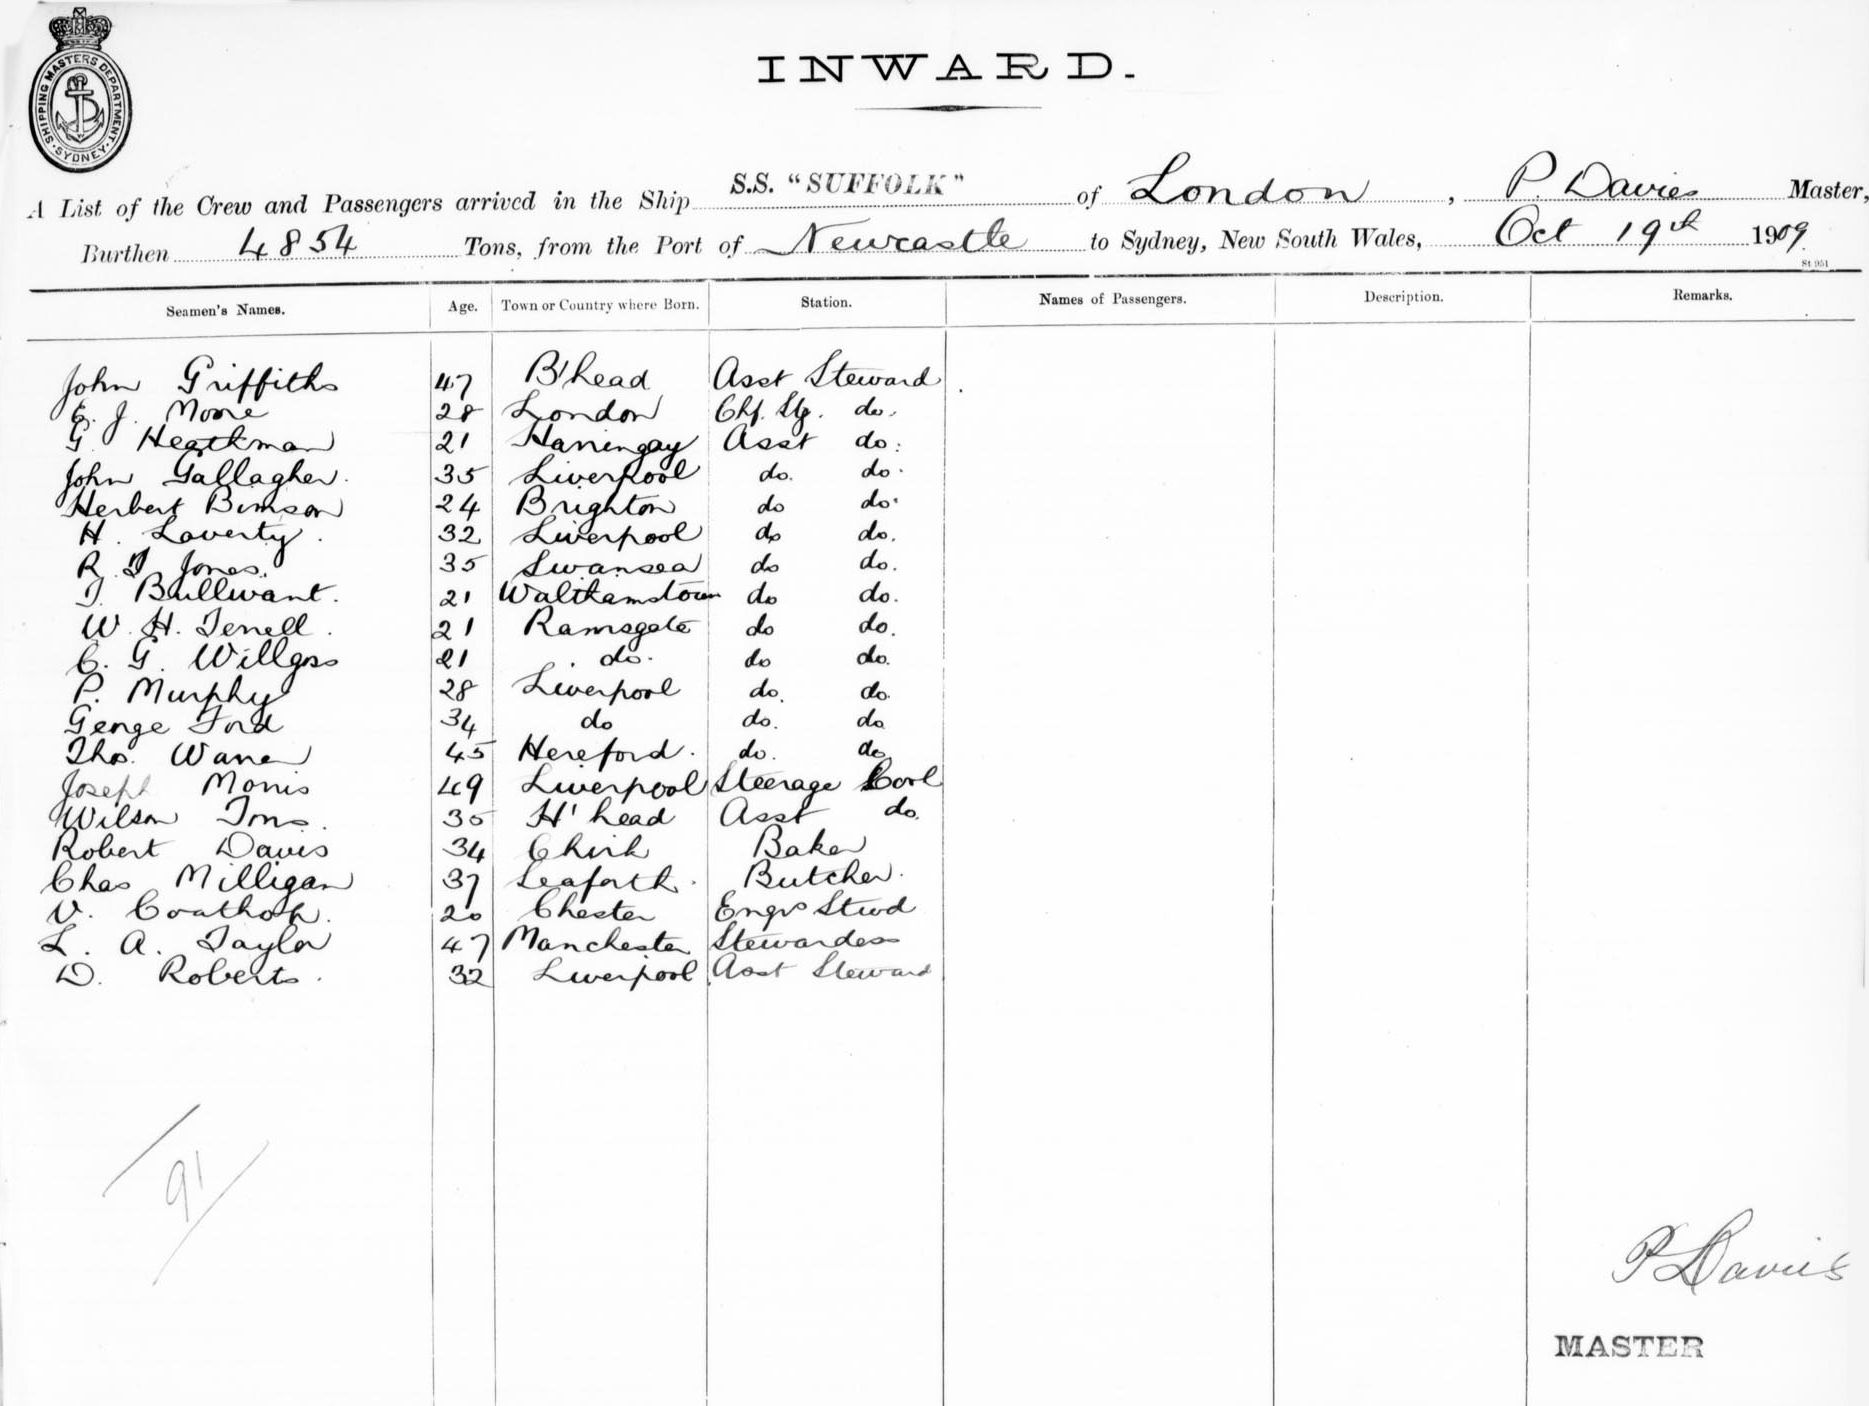 SHIPPING MASTERS DEPARTMENT
SYDNEY
INWARD.
A List of the Crew and Passengers arrived in the Ship S.S. "SUFFOLK" of London, P. Davies Master,
Burthen 4854 Tons, from the Port of Newcastle to Sydney, New South Wales, Oct 19th 1909
St 951
Seamen's Names. Age. Town or Country where Born. Station. Names of Passengers. Description. Remarks.
John Griffiths 47 B'head Asst Steward
E. J. Moore 28 London Chf. Stg. do.
G. Heathman 21 Harringay Asst do.
John Gallagher. 35 Liverpool do. do.
Herbert Bimson 24 Brighton do do.
H. Laverty. 32 Liverpool do do.
R. T Jones. 35 Swansea do do.
T. Bullivant. 21 Walthamstown do do.
W. H. Terrell. 21 Ramsgate do do.
C. G. Willgoss 21 do. do do.
P. Murphy 28 Liverpool do. do.
George Ford 34 do do. do
Thos. Warren 45 Hereford. do. do
Joseph Morris 49 Liverpool Steerage Cook
Wilson 35 H'head Asst do.
Robert Davis 34 Chirk Baker
Chas Milligan 37 Seaforth. Butcher.
V. Coathop. 20 Chester Engrs Stwd
L. A. Taylor 47 Manchester Stewardess
D. Roberts. 32 Liverpool Asst Steward
91
P Davies
MASTER